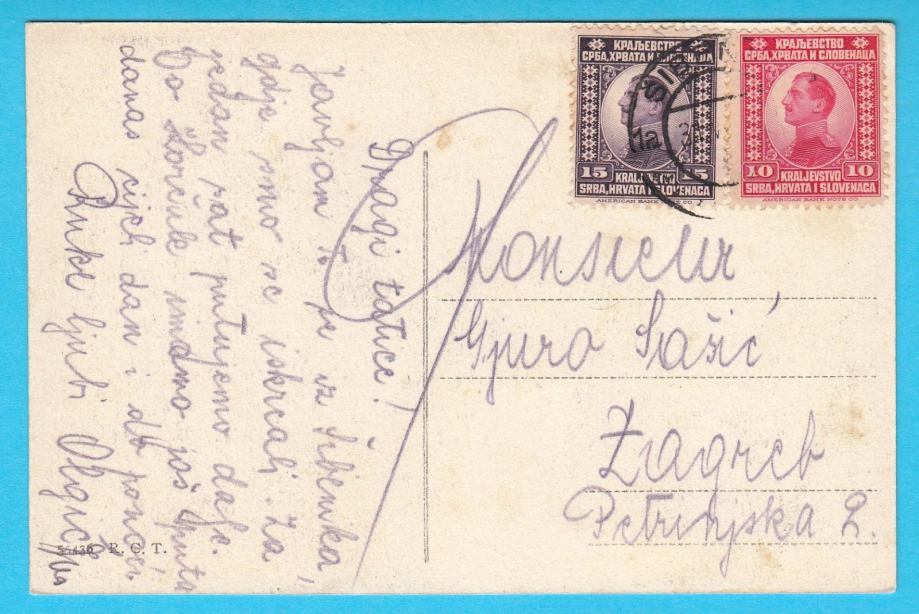 Dragi tatice!
Javljam ti se iz Šibenika,
gdje smo se iskrcali. Za
jedan sat putujemo dalje.
Do Korčule imamo još puta
danas cijeli dan i do ponoći.
Ruke ljubi Olgica
55436 R. C. T.
КРАЉЕВСТВО
СРБА, ХРВАТА И СЛОВЕНАЦА
15
KRALJEVSTVO
SRBA, HRVATA I SLOVENACA
AMERICAN BANK NOTE CO.
КРАЉЕВСТВО
СРБА, ХРВАТА И СЛОВЕНАЦА
10 10
KRALJEVSTVO
SRBA, HRVATA I SLOVENACA
AMERICAN BANK NOTE CO.
Monsieur
Gjuro Sašić
Zagreb
Petrinjska 2.